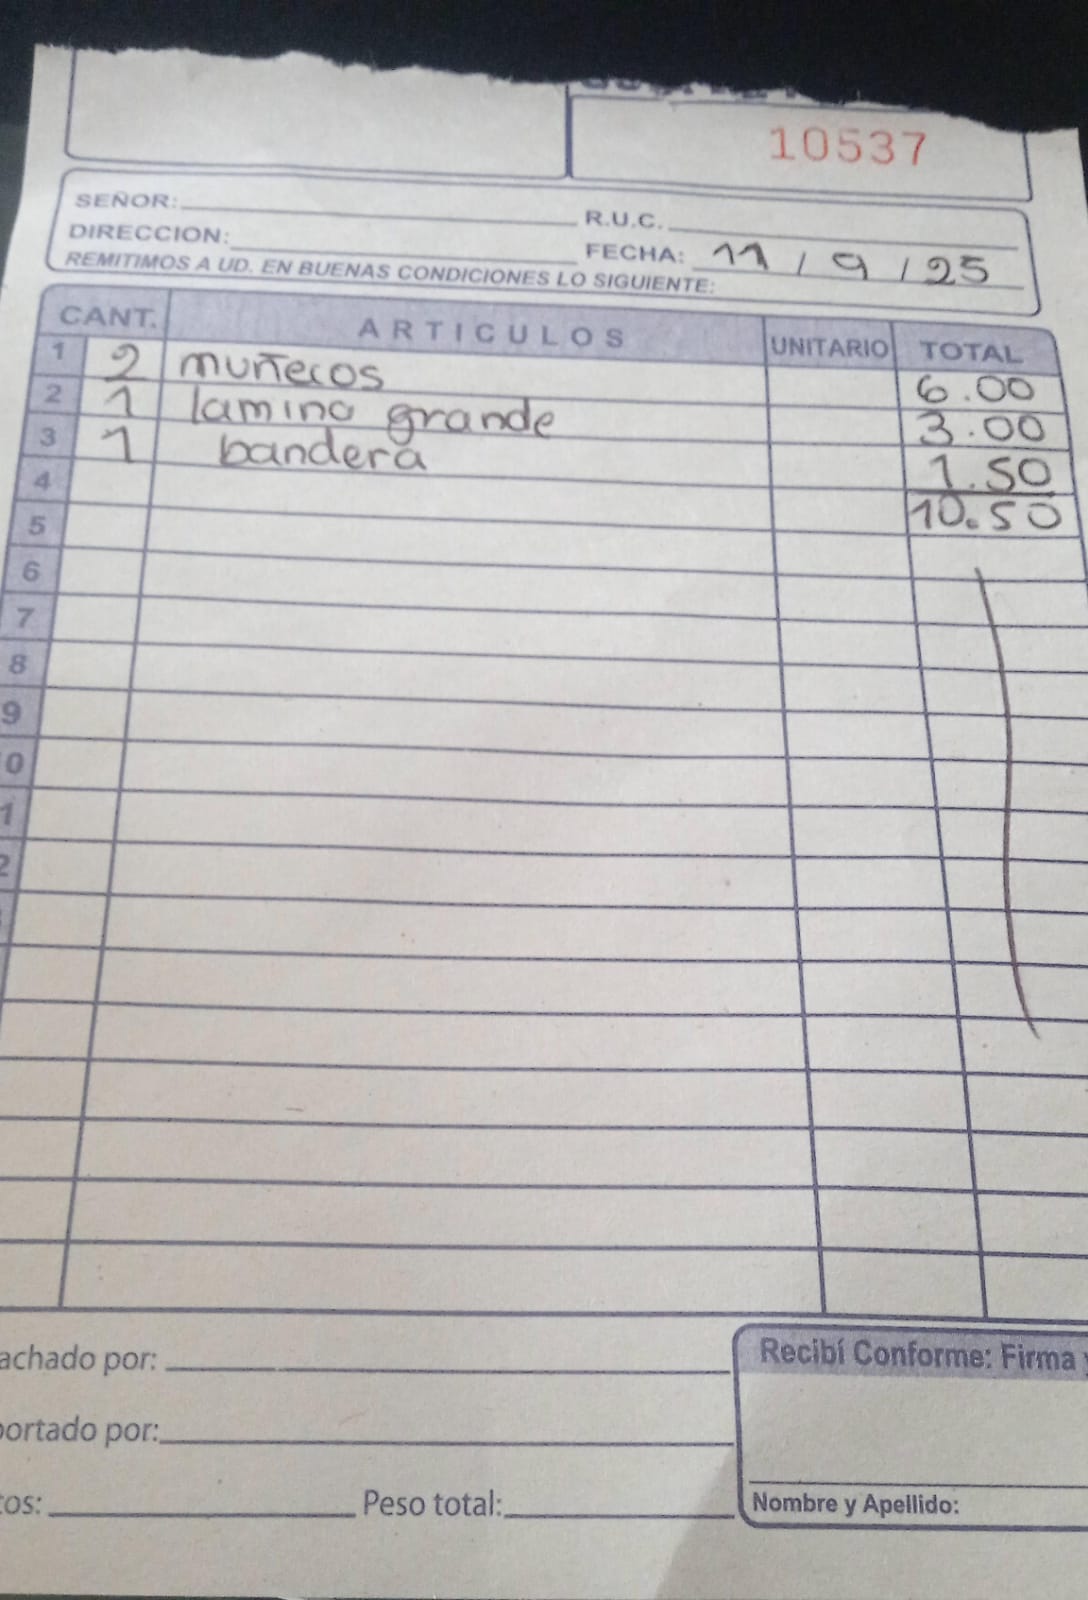 10537
SEÑOR:
R.U.C.
DIRECCION:
FECHA: 11 / 9 / 25
REMITIMOS A UD. EN BUENAS CONDICIONES LO SIGUIENTE:
CANT. ARTICULOS UNITARIO TOTAL
1 2 muñecos 6.00
2 1 lamina grande 3.00
3 1 bandera 1.50
4 10.50
5
6
7
8
9
0
1
2
achado por:
portado por:
tos: Peso total:
Recibí Conforme: Firma y
Nombre y Apellido: